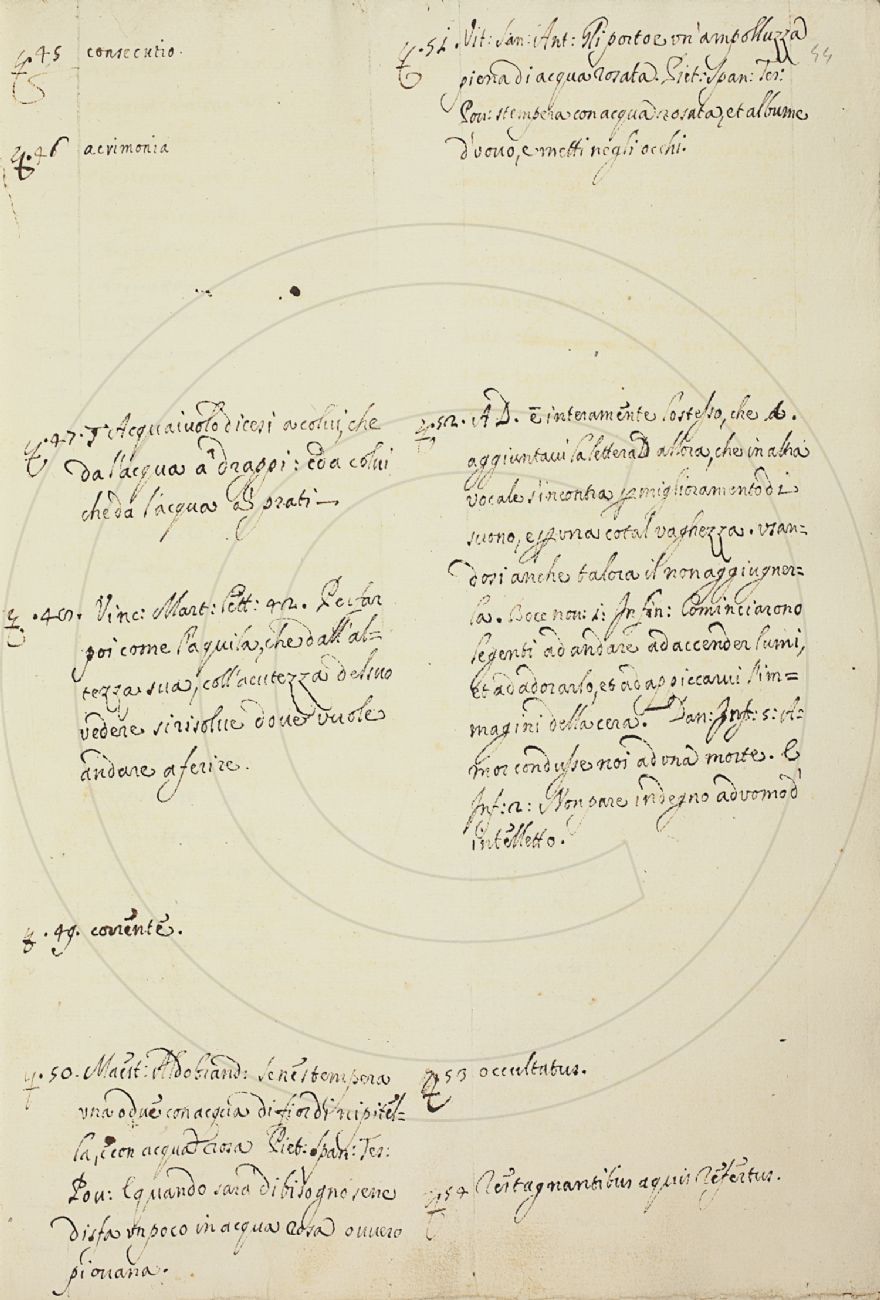 45 consecutio.
46 acrimonia
.47. Acquaiuolo dicesi a colui, che
da l'acqua a' drappi: e da colui
che da l'acqua a' prati
.48. Vinc: Mart: lett: 42. Per far
poi come l'aquila, che dall'al=
tezza sua, coll'acutezza del suo
vedere si risolue doue vuole
andare a ferire.
.49. corrente.
.50. Maest: Aldobrand: se ne stempera
vna o due con acqua di fior di
la, e con acqua rosa Piet: Span: Tes:
Pou: E quando sara di bisogno sene
disfa vn poco in acqua rosa ouuero
piouana.
.51. Vit: San: Ant: Gli portoe vn'ampolluzza
piena di acqua rosata. Piet: Span: Tes:
Pou: stempera con acqua rosata, et albume
d'vouo, e metti negli occhi.
.52. AD. è interamente lo stesso, che A.
aggiuntaui la lettera D allora, che in altra
vocale s'incontra per miglioramento di
suono, e per vna cotal vaghezza. vsan=
dosi anche talora il non aggiugner=
la. Bocc nou: 1: In fin: Cominciarono
le genti ad andare ad accender lumi,
et ad adorarlo, et ad appiccarui l'im=
magini della cera. Dan: Inf: 5: A=
mor condusse noi ad vna morte. E
Inf: 2: Non pare indegno ad vomo d'
intelletto.
53 occultatus.
54 restagnantibus aquis refertus.